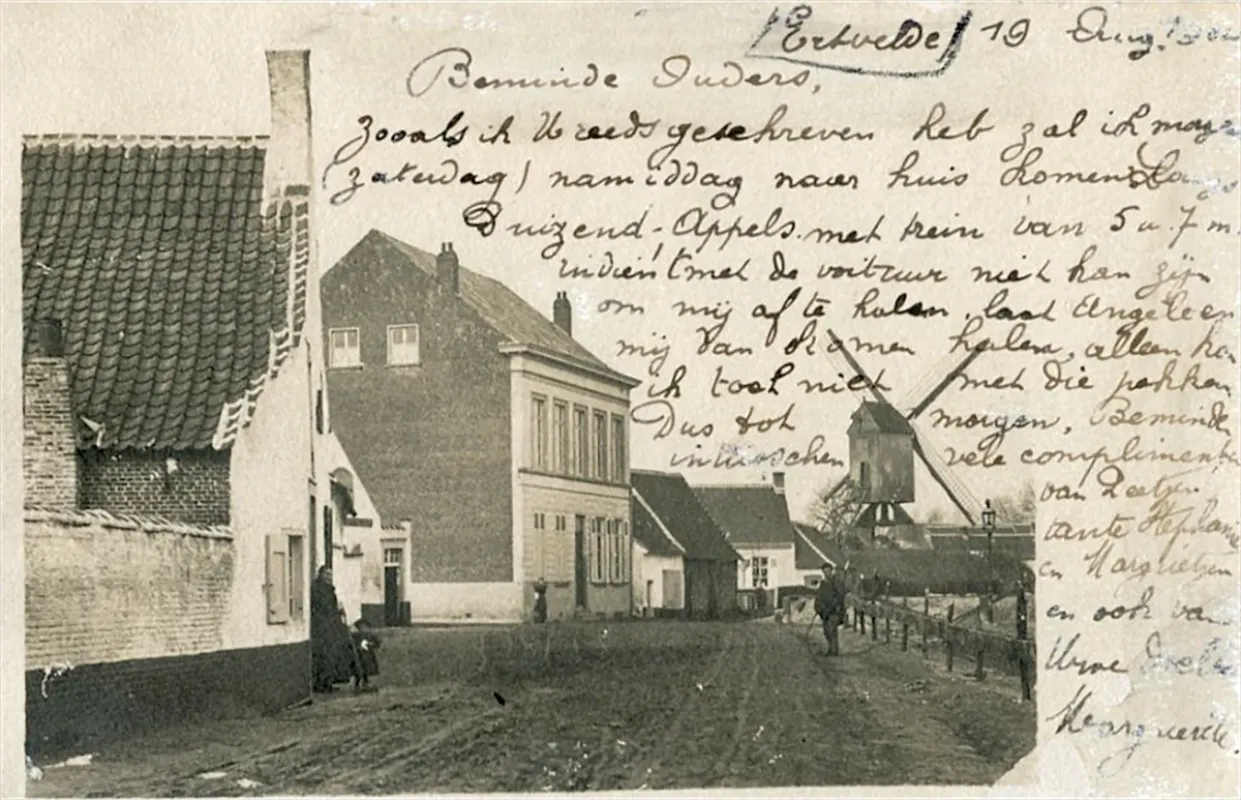 Ertvelde 19 Aug.
Beminde Ouders,
Zooals ik U reeds geschreven heb zal ik
(zaterdag) namiddag naar huis komen langs
Duizend-Appels. met trein van 5 u. 7 m.
indien 't met de voituur niet kan zijn
om mij af te halen, laat Angeleen
mij van komen halen, alleen kan
ik toch niet met die pakken
Dus tot morgen, Beminde
intusschen vele complimenten
van
tante Stephanie
en Margrietjen
en ook van
Uwe
Marguerite.